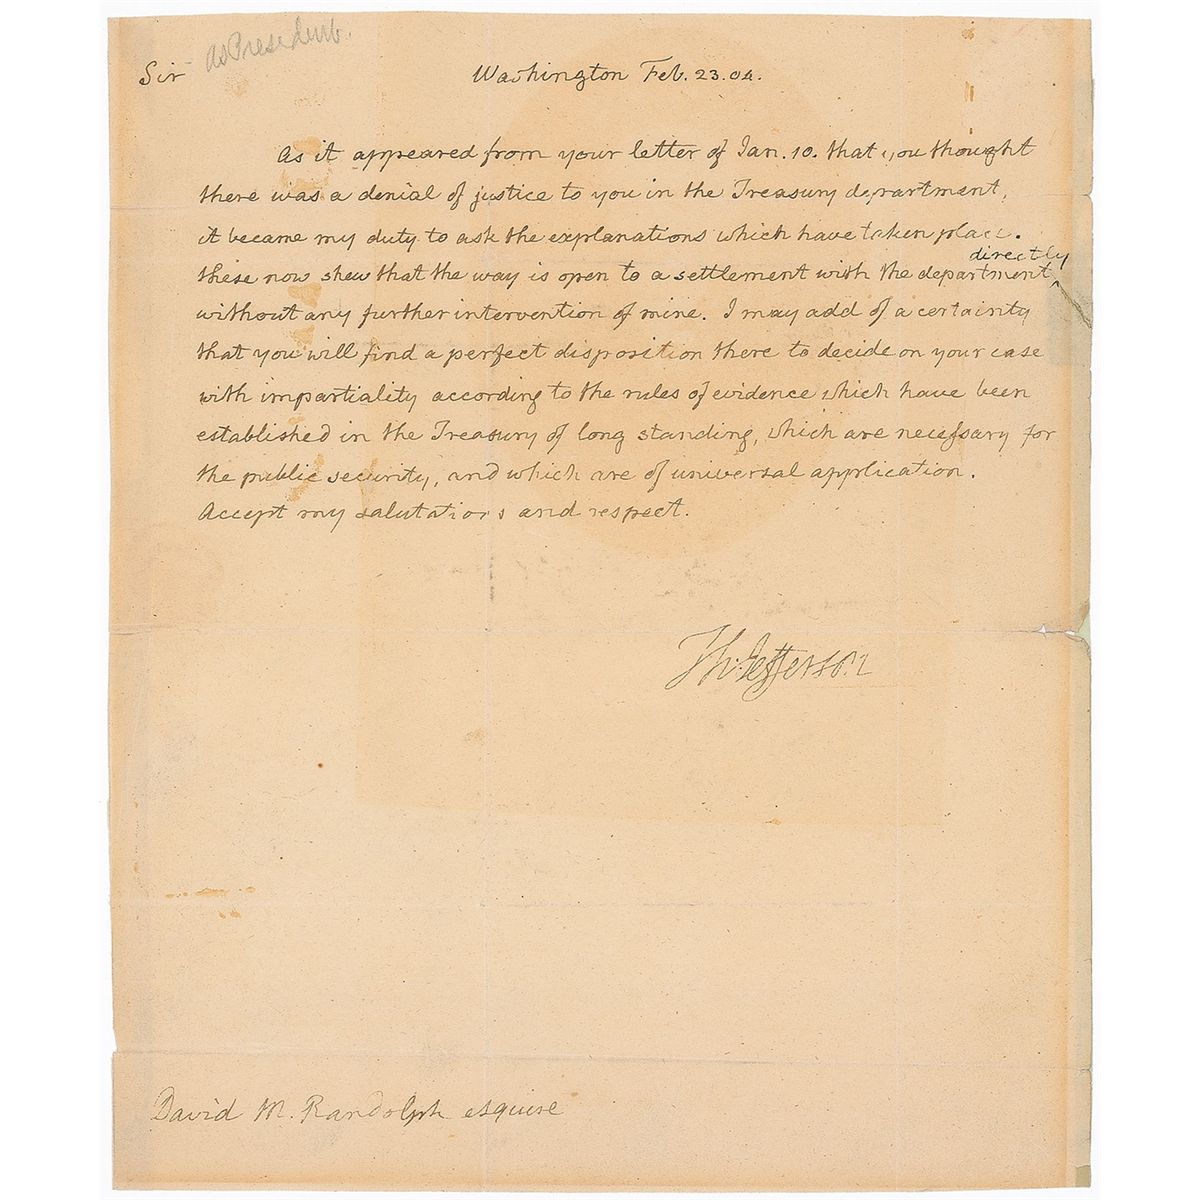 as President.
Sir Washington Feb. 23. 04.
As it appeared from your letter of Jan. 10. that you thought
there was a denial of justice to you in the Treasury department,
it became my duty to ask the explanations which have taken place.
these now shew that the way is open to a settlement with the department directly
without any further intervention of mine. I may add of a certainty
that you will find a perfect disposition there to decide on your case
with impartiality according to the rules of evidence which have been
established in the Treasury of long standing, which are necessary for
the public security, and which are of universal application.
Accept my salutations and respect.
Th: Jefferson
David M. Randolph esquire